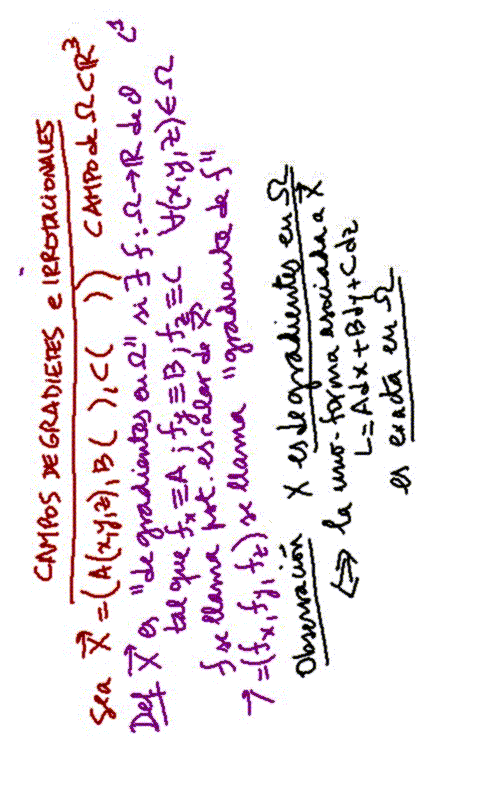 CAMPOS DE GRADIETES e IRROTACIONALES
Sea X⃗ = (A(x,y,z), B( ), C( )) CAMPO de Ω⊂ℝ³
Def X⃗ es "de gradientes en Ω" si ∃ f: Ω→ℝ de C¹
tal que fx ≡ A; fy ≡ B, fz ≡ C ∀(x,y,z)∈Ω
f se llama pot. escalar de X⃗
→ = (fx, fy, fz) se llama "gradiente de f"
Observación X es de gradientes en Ω
⇔ la uno-forma asociada a X⃗
L = Adx + Bdy + Cdz
es exacta en Ω